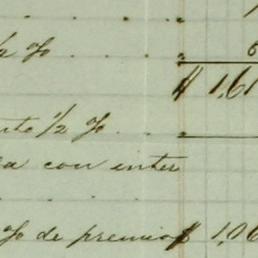 1/2 %
$ 1,61
1/2 %
a con inter
% de premio $ 1,06